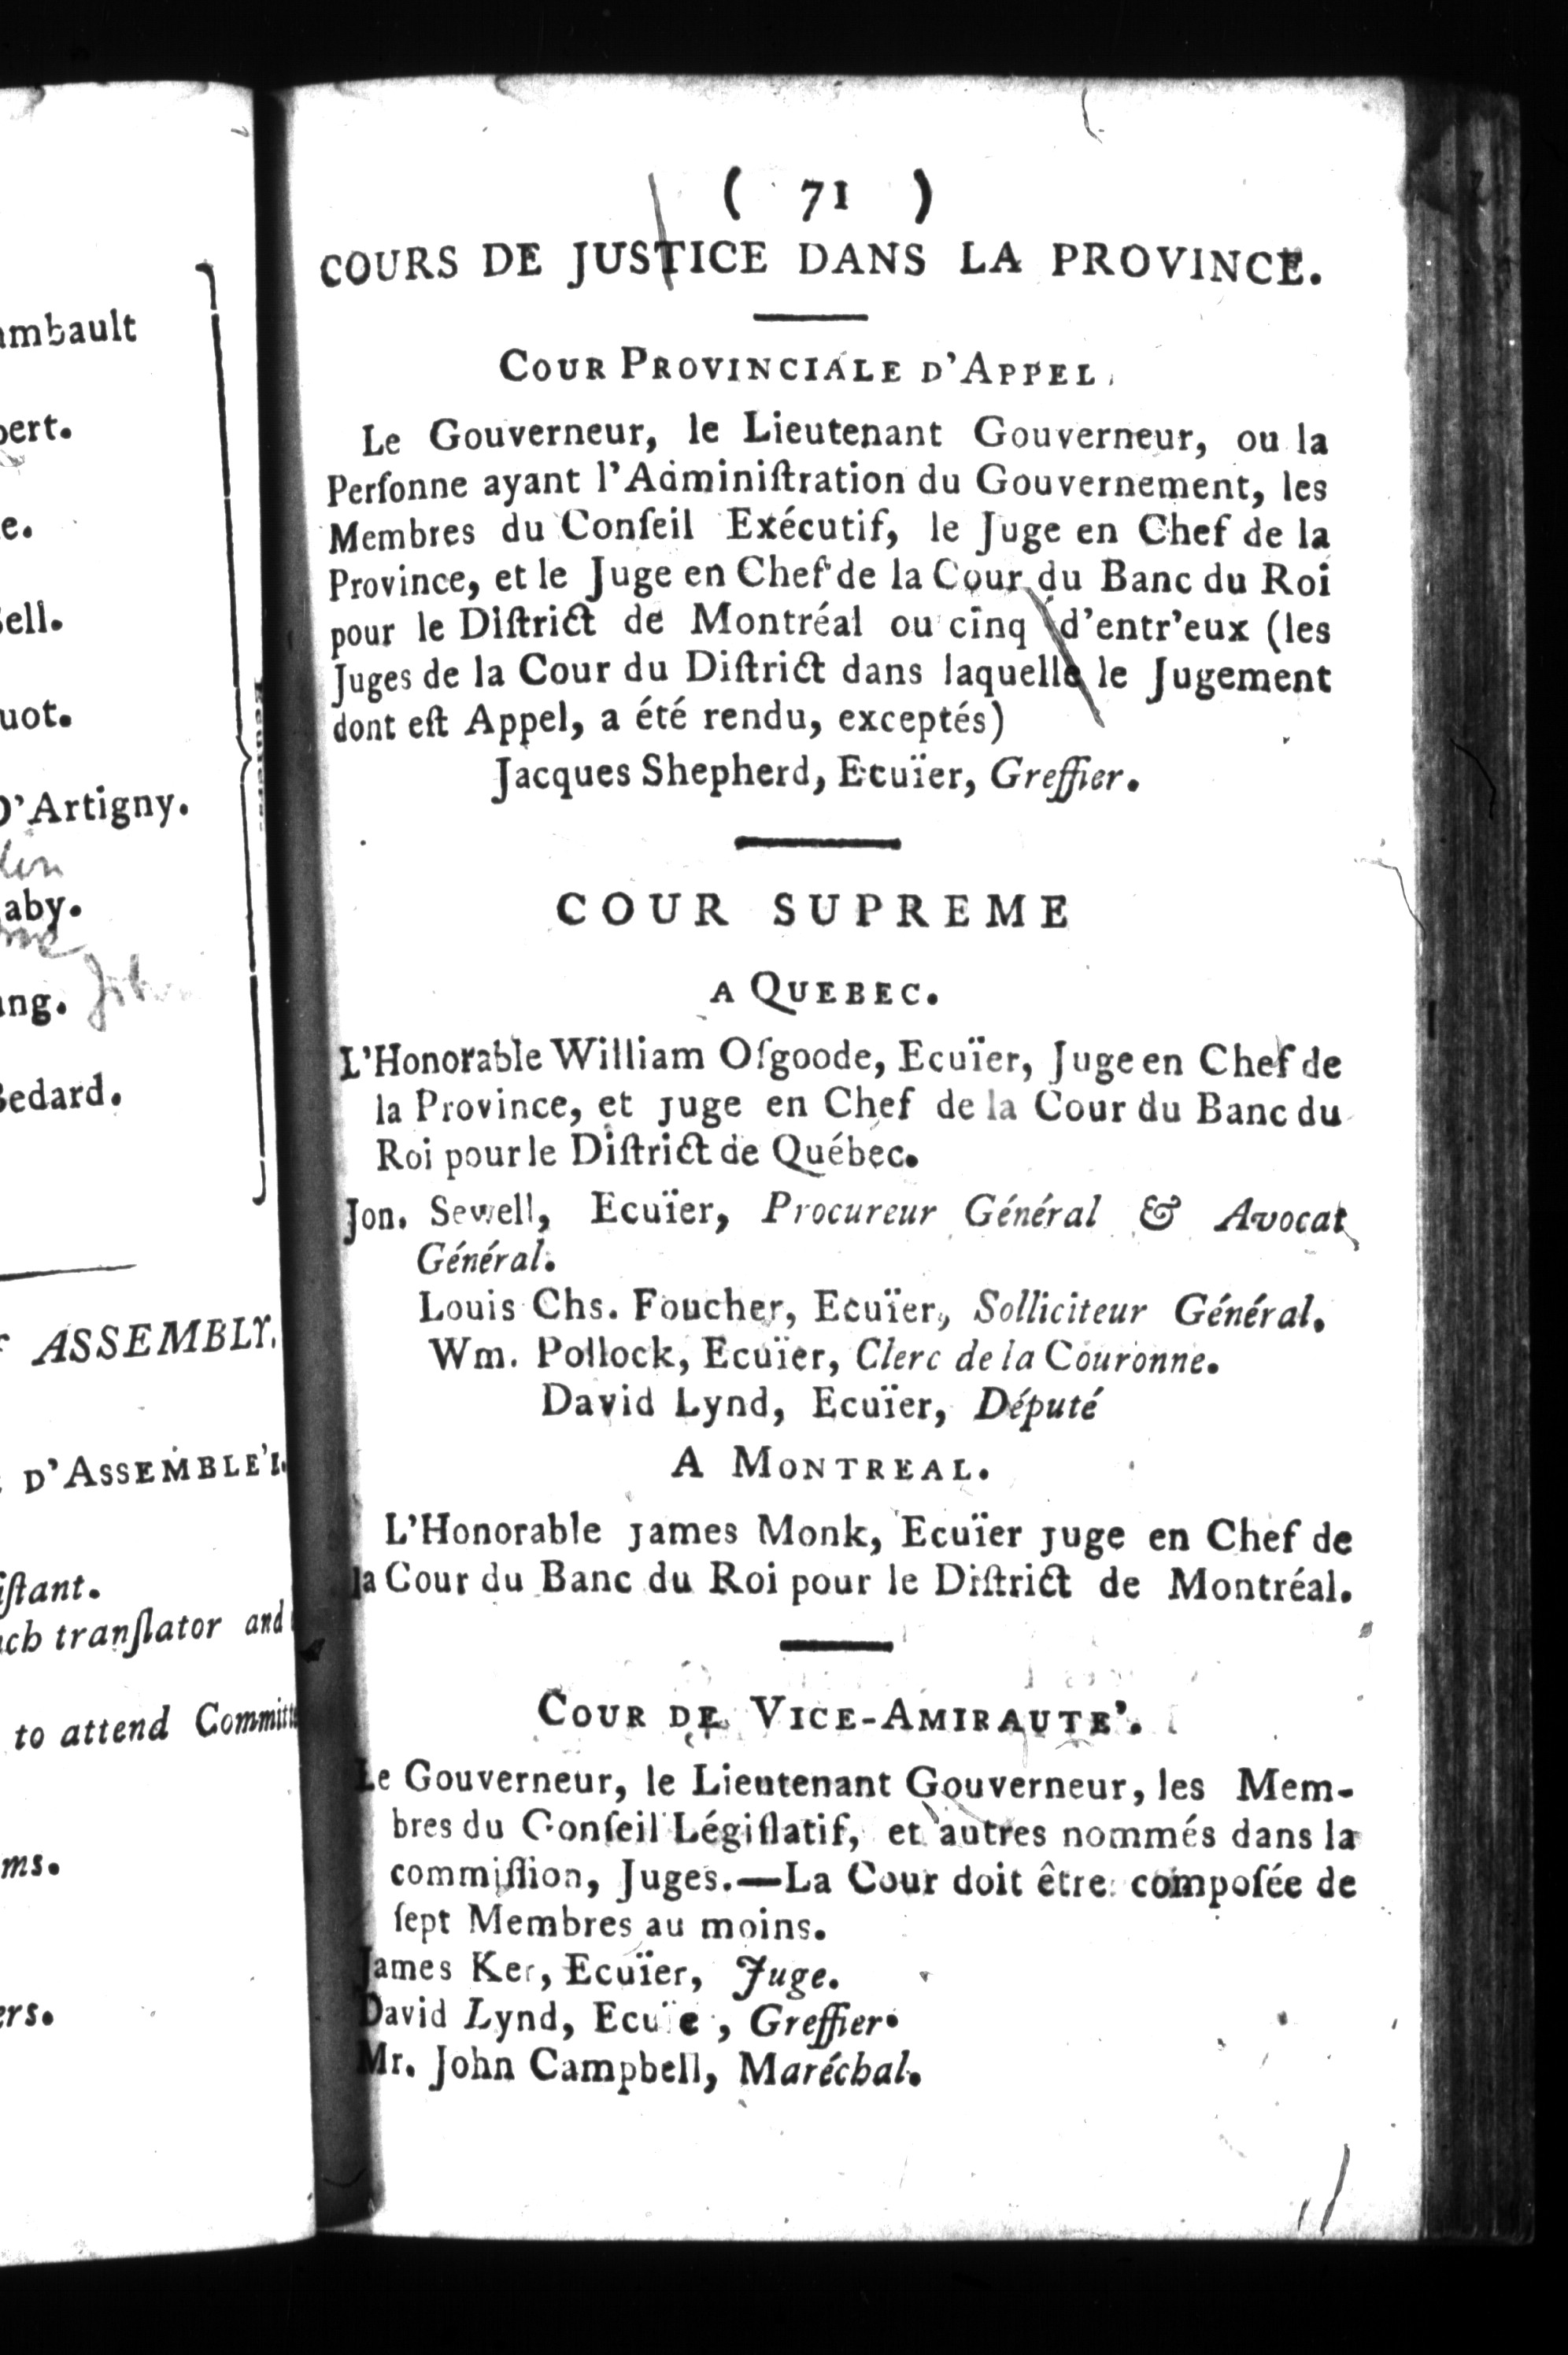 ambault
bert.
e.
sell.
uot.
D'Artigny.
aby.
ang.
Bedard.
ASSEMBLY.
D'ASSEMBLE'E.
iſtant.
nch tranſlator and
to attend Committe
ms.
ers.
( 71 )
COURS DE JUSTICE DANS LA PROVINCE.
COUR PROVINCIALE D'APPEL.
Le Gouverneur, le Lieutenant Gouverneur, ou la
Perſonne ayant l'Adminiſtration du Gouvernement, les
Membres du Conſeil Exécutif, le Juge en Chef de la
Province, et le Juge en Chef de la Cour du Banc du Roi
pour le Diſtrict de Montréal ou cinq d'entr'eux (les
Juges de la Cour du Diſtrict dans laquelle le Jugement
dont eſt Appel, a été rendu, exceptés)
Jacques Shepherd, Ecuïer, Greffier.
COUR SUPREME
A QUEBEC.
L'Honorable William Oſgoode, Ecuïer, Juge en Chef de
la Province, et Juge en Chef de la Cour du Banc du
Roi pour le Diſtrict de Québec.
Jon. Sewell, Ecuïer, Procureur Général & Avocat
Général.
Louis Chs. Foucher, Ecuïer, Solliciteur Général.
Wm. Pollock, Ecuïer, Clerc de la Couronne.
David Lynd, Ecuïer, Député
A MONTREAL.
L'Honorable James Monk, Ecuïer Juge en Chef de
la Cour du Banc du Roi pour le Diſtrict de Montréal.
COUR DE VICE-AMIRAUTE'.
Le Gouverneur, le Lieutenant Gouverneur, les Mem-
bres du Conſeil Légiſlatif, et autres nommés dans la
commiſſion, Juges.—La Cour doit être compoſée de
ſept Membres au moins.
James Ker, Ecuïer, Juge.
David Lynd, Ecuïe , Greffier.
Mr. John Campbell, Maréchal.